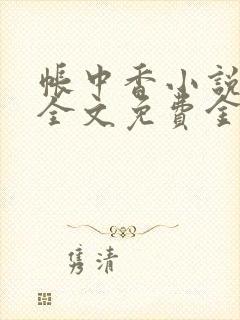 帐中香小说
全文免费全
隽清